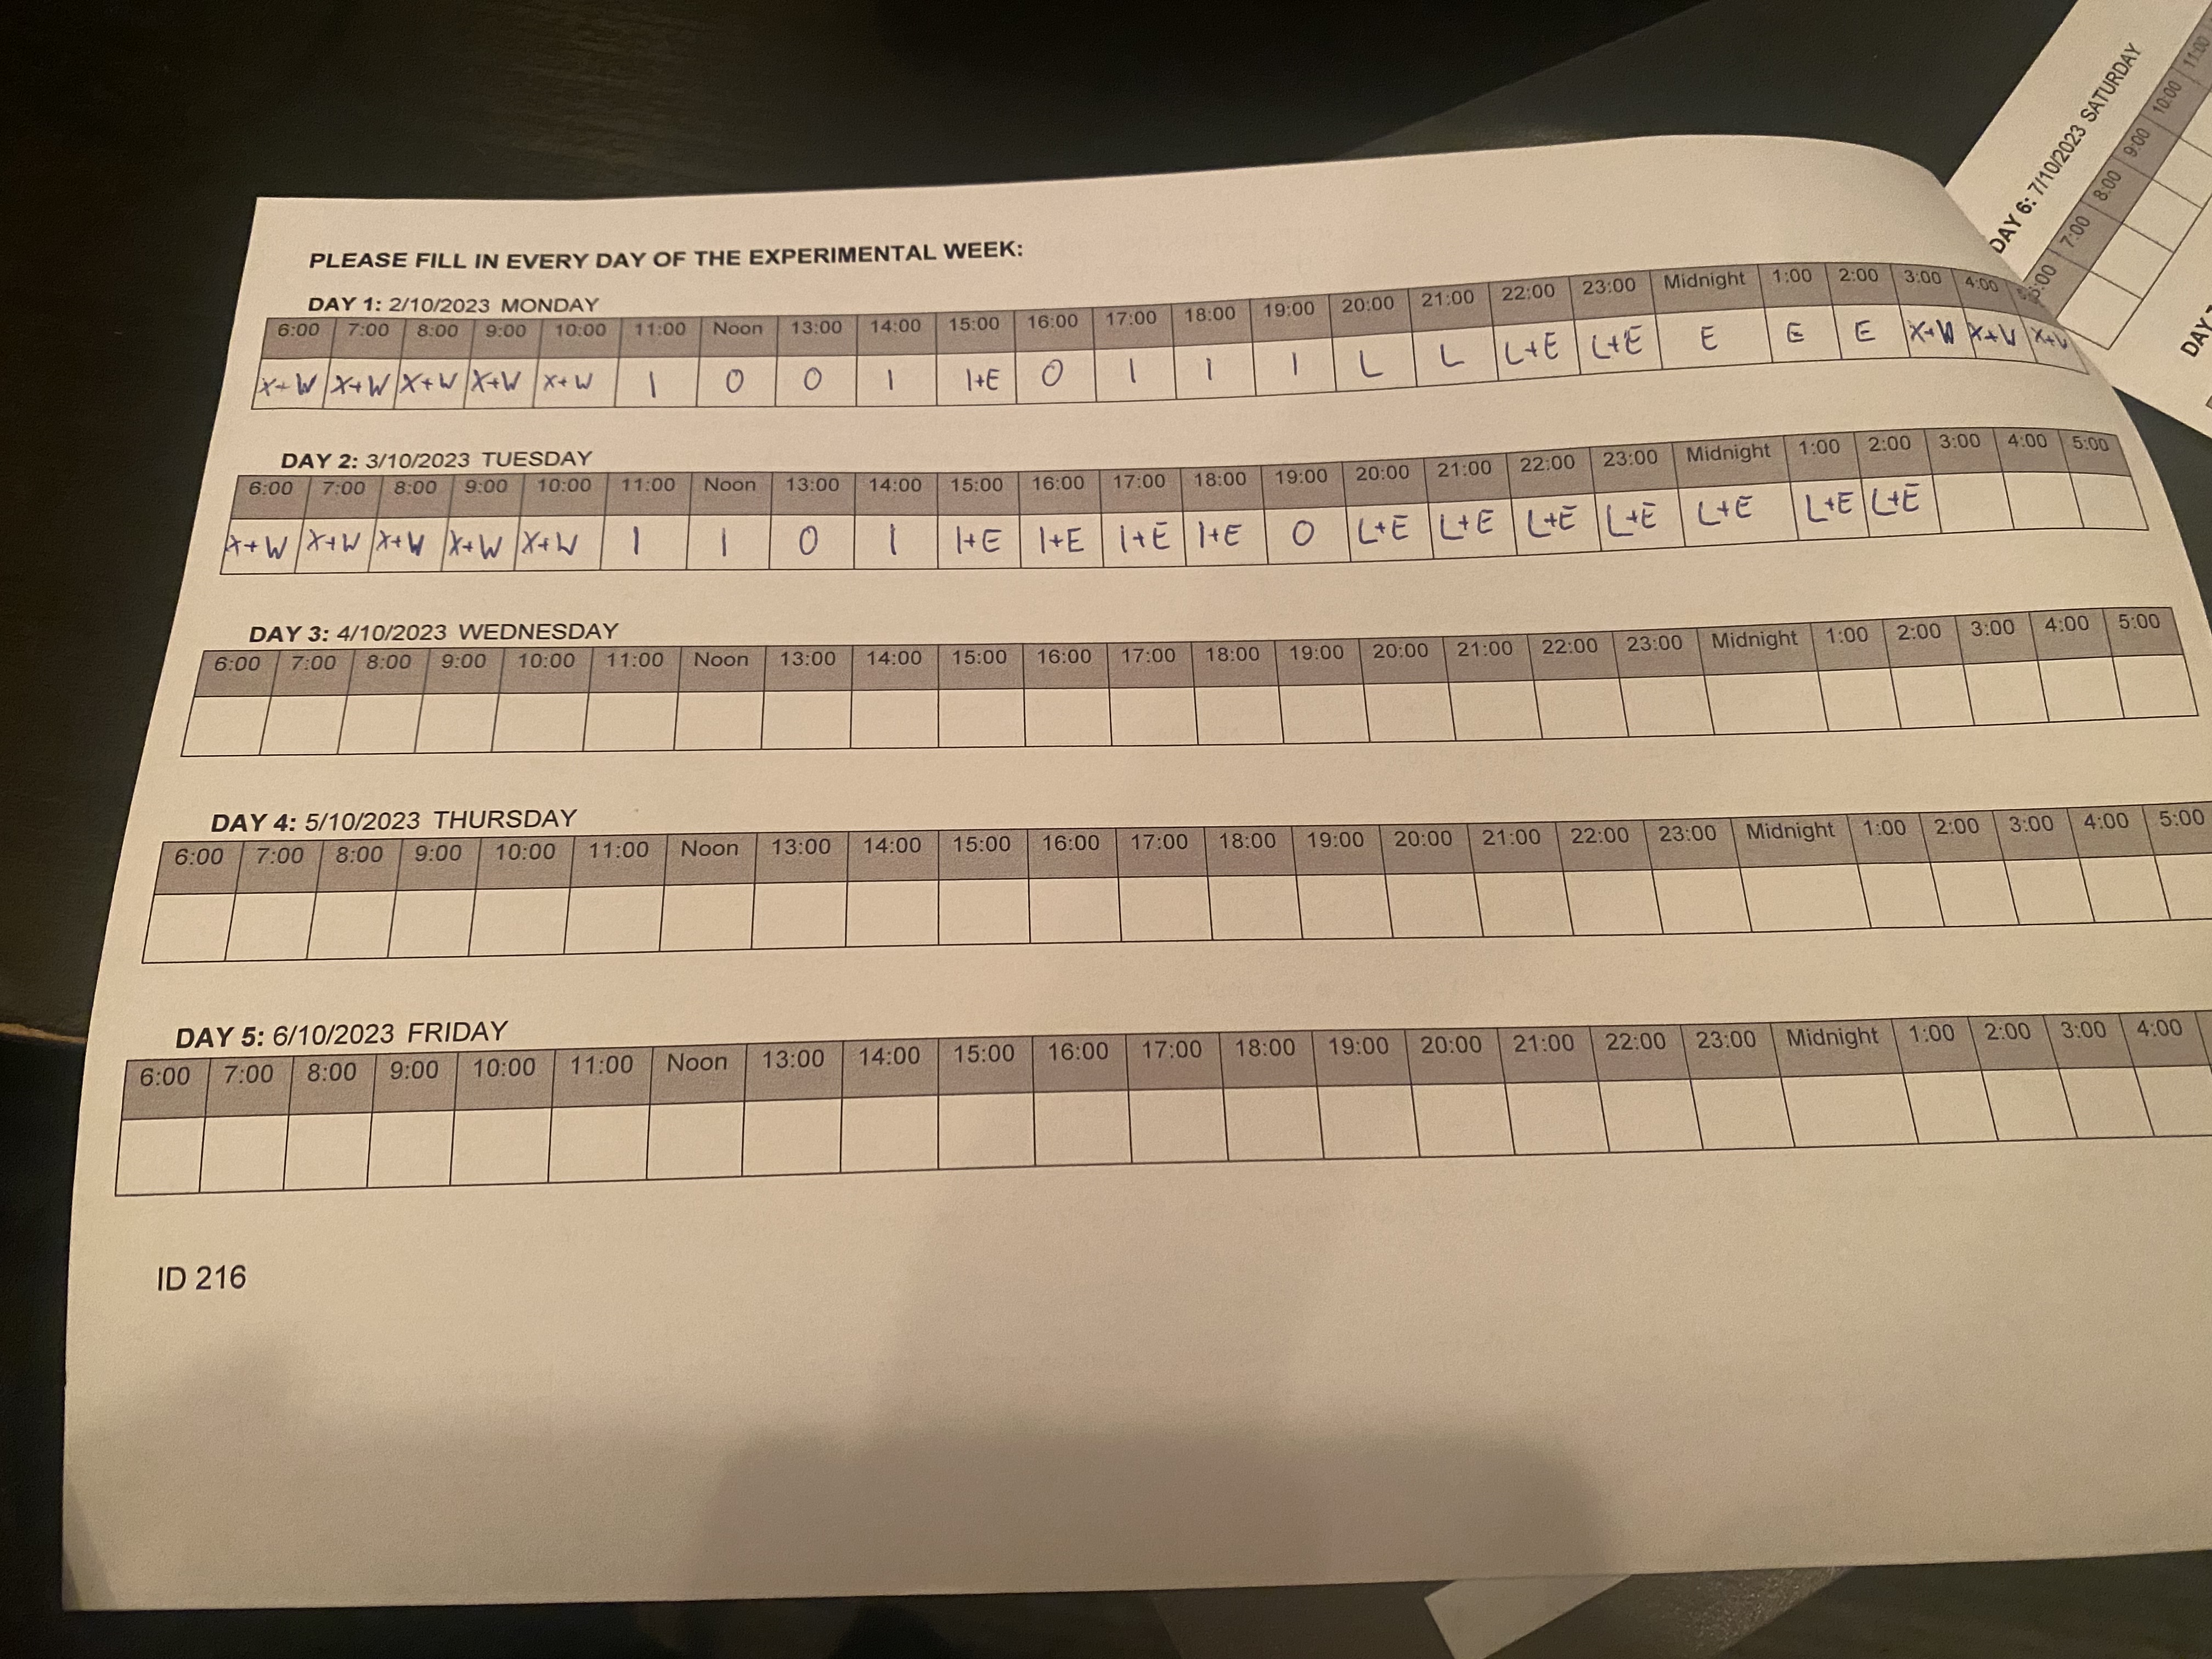 PLEASE FILL IN EVERY DAY OF THE EXPERIMENTAL WEEK:
DAY 1: 2/10/2023 MONDAY
6:00 7:00 8:00 9:00 10:00 11:00 Noon 13:00 14:00 15:00 16:00 17:00 18:00 19:00 20:00 21:00 22:00 23:00 Midnight 1:00 2:00 3:00 4:00
X+W X+W X+W X+W X+W 1 0 0 1 1+E 0 1 1 1 L L L+E L+E E E E X+W X+W X+W
DAY 2: 3/10/2023 TUESDAY
6:00 7:00 8:00 9:00 10:00 11:00 Noon 13:00 14:00 15:00 16:00 17:00 18:00 19:00 20:00 21:00 22:00 23:00 Midnight 1:00 2:00 3:00 4:00 5:00
X+W X+W X+W X+W X+W 1 1 0 1 1+E 1+E 1+E 1+E 0 L+E L+E L+E L+E L+E L+E L+E
DAY 3: 4/10/2023 WEDNESDAY
6:00 7:00 8:00 9:00 10:00 11:00 Noon 13:00 14:00 15:00 16:00 17:00 18:00 19:00 20:00 21:00 22:00 23:00 Midnight 1:00 2:00 3:00 4:00 5:00
DAY 4: 5/10/2023 THURSDAY
6:00 7:00 8:00 9:00 10:00 11:00 Noon 13:00 14:00 15:00 16:00 17:00 18:00 19:00 20:00 21:00 22:00 23:00 Midnight 1:00 2:00 3:00 4:00 5:00
DAY 5: 6/10/2023 FRIDAY
6:00 7:00 8:00 9:00 10:00 11:00 Noon 13:00 14:00 15:00 16:00 17:00 18:00 19:00 20:00 21:00 22:00 23:00 Midnight 1:00 2:00 3:00 4:00
ID 216
DAY 6: 7/10/2023 SATURDAY
6:00 7:00 8:00 9:00 10:00 11:00
DAY